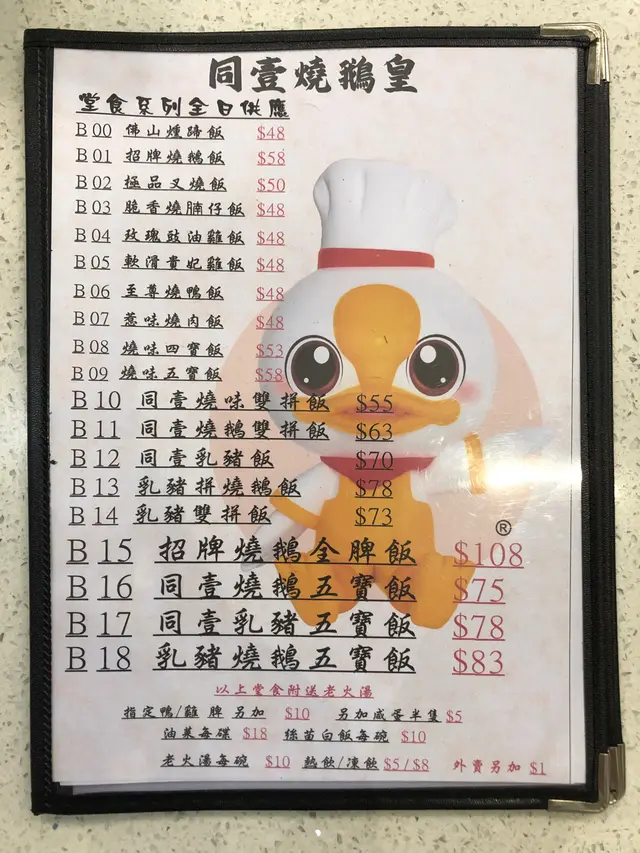 同壹燒鵝皇
堂食系列全日供應
B 00 佛山燻蹄飯 $48
B 01 招牌燒鵝飯 $58
B 02 極品叉燒飯 $50
B 03 脆香燒腩仔飯 $48
B 04 玫瑰豉油雞飯 $48
B 05 軟滑貴妃雞飯 $48
B 06 至尊燒鴨飯 $48
B 07 惹味燒肉飯 $48
B 08 燒味四寶飯 $53
B 09 燒味五寶飯 $58
B 10 同壹燒味雙拼飯 $55
B 11 同壹燒鵝雙拼飯 $63
B 12 同壹乳豬飯 $70
B 13 乳豬拼燒鵝飯 $78
B 14 乳豬雙拼飯 $73
®
B 15 招牌燒鵝全脾飯 $108
B 16 同壹燒鵝五寶飯 $75
B 17 同壹乳豬五寶飯 $78
B 18 乳豬燒鵝五寶飯 $83
以上堂食附送老火湯
指定鴨/雞 脾 另加 $10 另加咸蛋半隻 $5
油菜每碟 $18 絲苗白飯每碗 $10
老火湯每碗 $10 熱飲/凍飲 $5/$8 外賣另加 $1